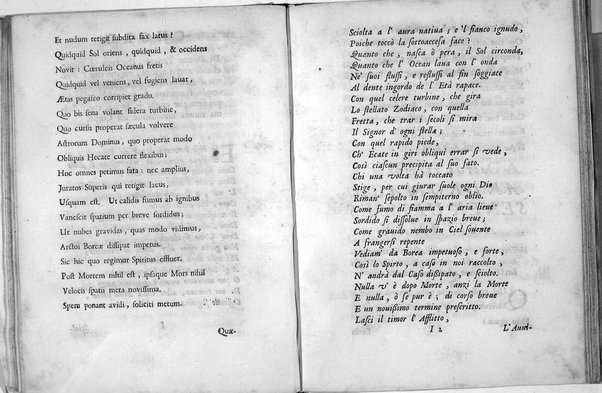 Et nudum tetigit subdita fax latus?
Quidquid Sol oriens, quidquid, & occidens
Novit: Cœruleis Oceanus fretis
Quidquid vel veniens, vel fugiens lauat,
Ætas pegaseo corripiet gradu.
Quo bis sena volant sidera turbine,
Quo cursu properat sæcula volvere
Astrorum Dominus, quo properat modo
Obliquis Hecate currere flexibus;
Hoc omnes petimus fata: nec amplius,
Juratos Superis qui tetigit lacus,
Usquam est. Ut calidis fumus ab ignibus
Vanescit spatium per breve sordidus;
Ut nubes gravidas, quas modo vidimus,
Arctoi Boreæ dissipat imperus.
Sic hic quo regimur Spiritus effluet.
Post Mortem nihil est, ipsaque Mors nihil
Velocis spatii meta novissima.
Spem ponant avidi, soliciti metum.
Quæ-
Sciolta a l' aura natiua; e 'l fianco ignudo,
Poiche toccò la sottoaccesa face?
Quanto che, nasca ò pera, il Sol circonda,
Quanto che l' Ocean laua con l' onda
Ne' suoi flussi, e reflussi al fin soggiace
Al dente ingordo de l' Età rapace.
Con quel celere turbine, che gira
Lo stellato Zodiaco, con quella
Fretta, che trar i secoli si mira
Il Signor d' ogni stella;
Con quel rapido piede,
Ch' Ecate in giri obliqui errar si vede,
Così ciascun precipita al suo fato.
Chi una volta hà toccato
Stige, per cui giurar suole ogni Dio
Riman' sepolto in sempiterno oblio.
Come fumo di fiamma a l' aria lieue
Sordido si dissolue in spazio breue;
Come grauido nembo in Ciel souente
A frangersi repente
Vediam' da Borea impetuoso, e forte,
Così lo Spirto, a caso in noi raccolto,
N' andrà dal Caso dissipato, e sciolto.
Nulla v' è dopo Morte, anzi la Morte
E nulla, ò se pur è; di corso breue
E un nouissimo termine prescritto.
Lasci il timor l' Afflitto,
I 2
L' Auuel-